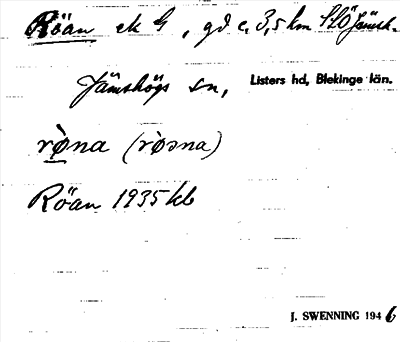 Röan ek G, gd c. 3,5 km SLÖ Jämsh.
Jämshögs sn, Listers hd, Blekinge län.
rø̀na (rò̀əna)
Röan 1935 kb
J. SWENNING 1946